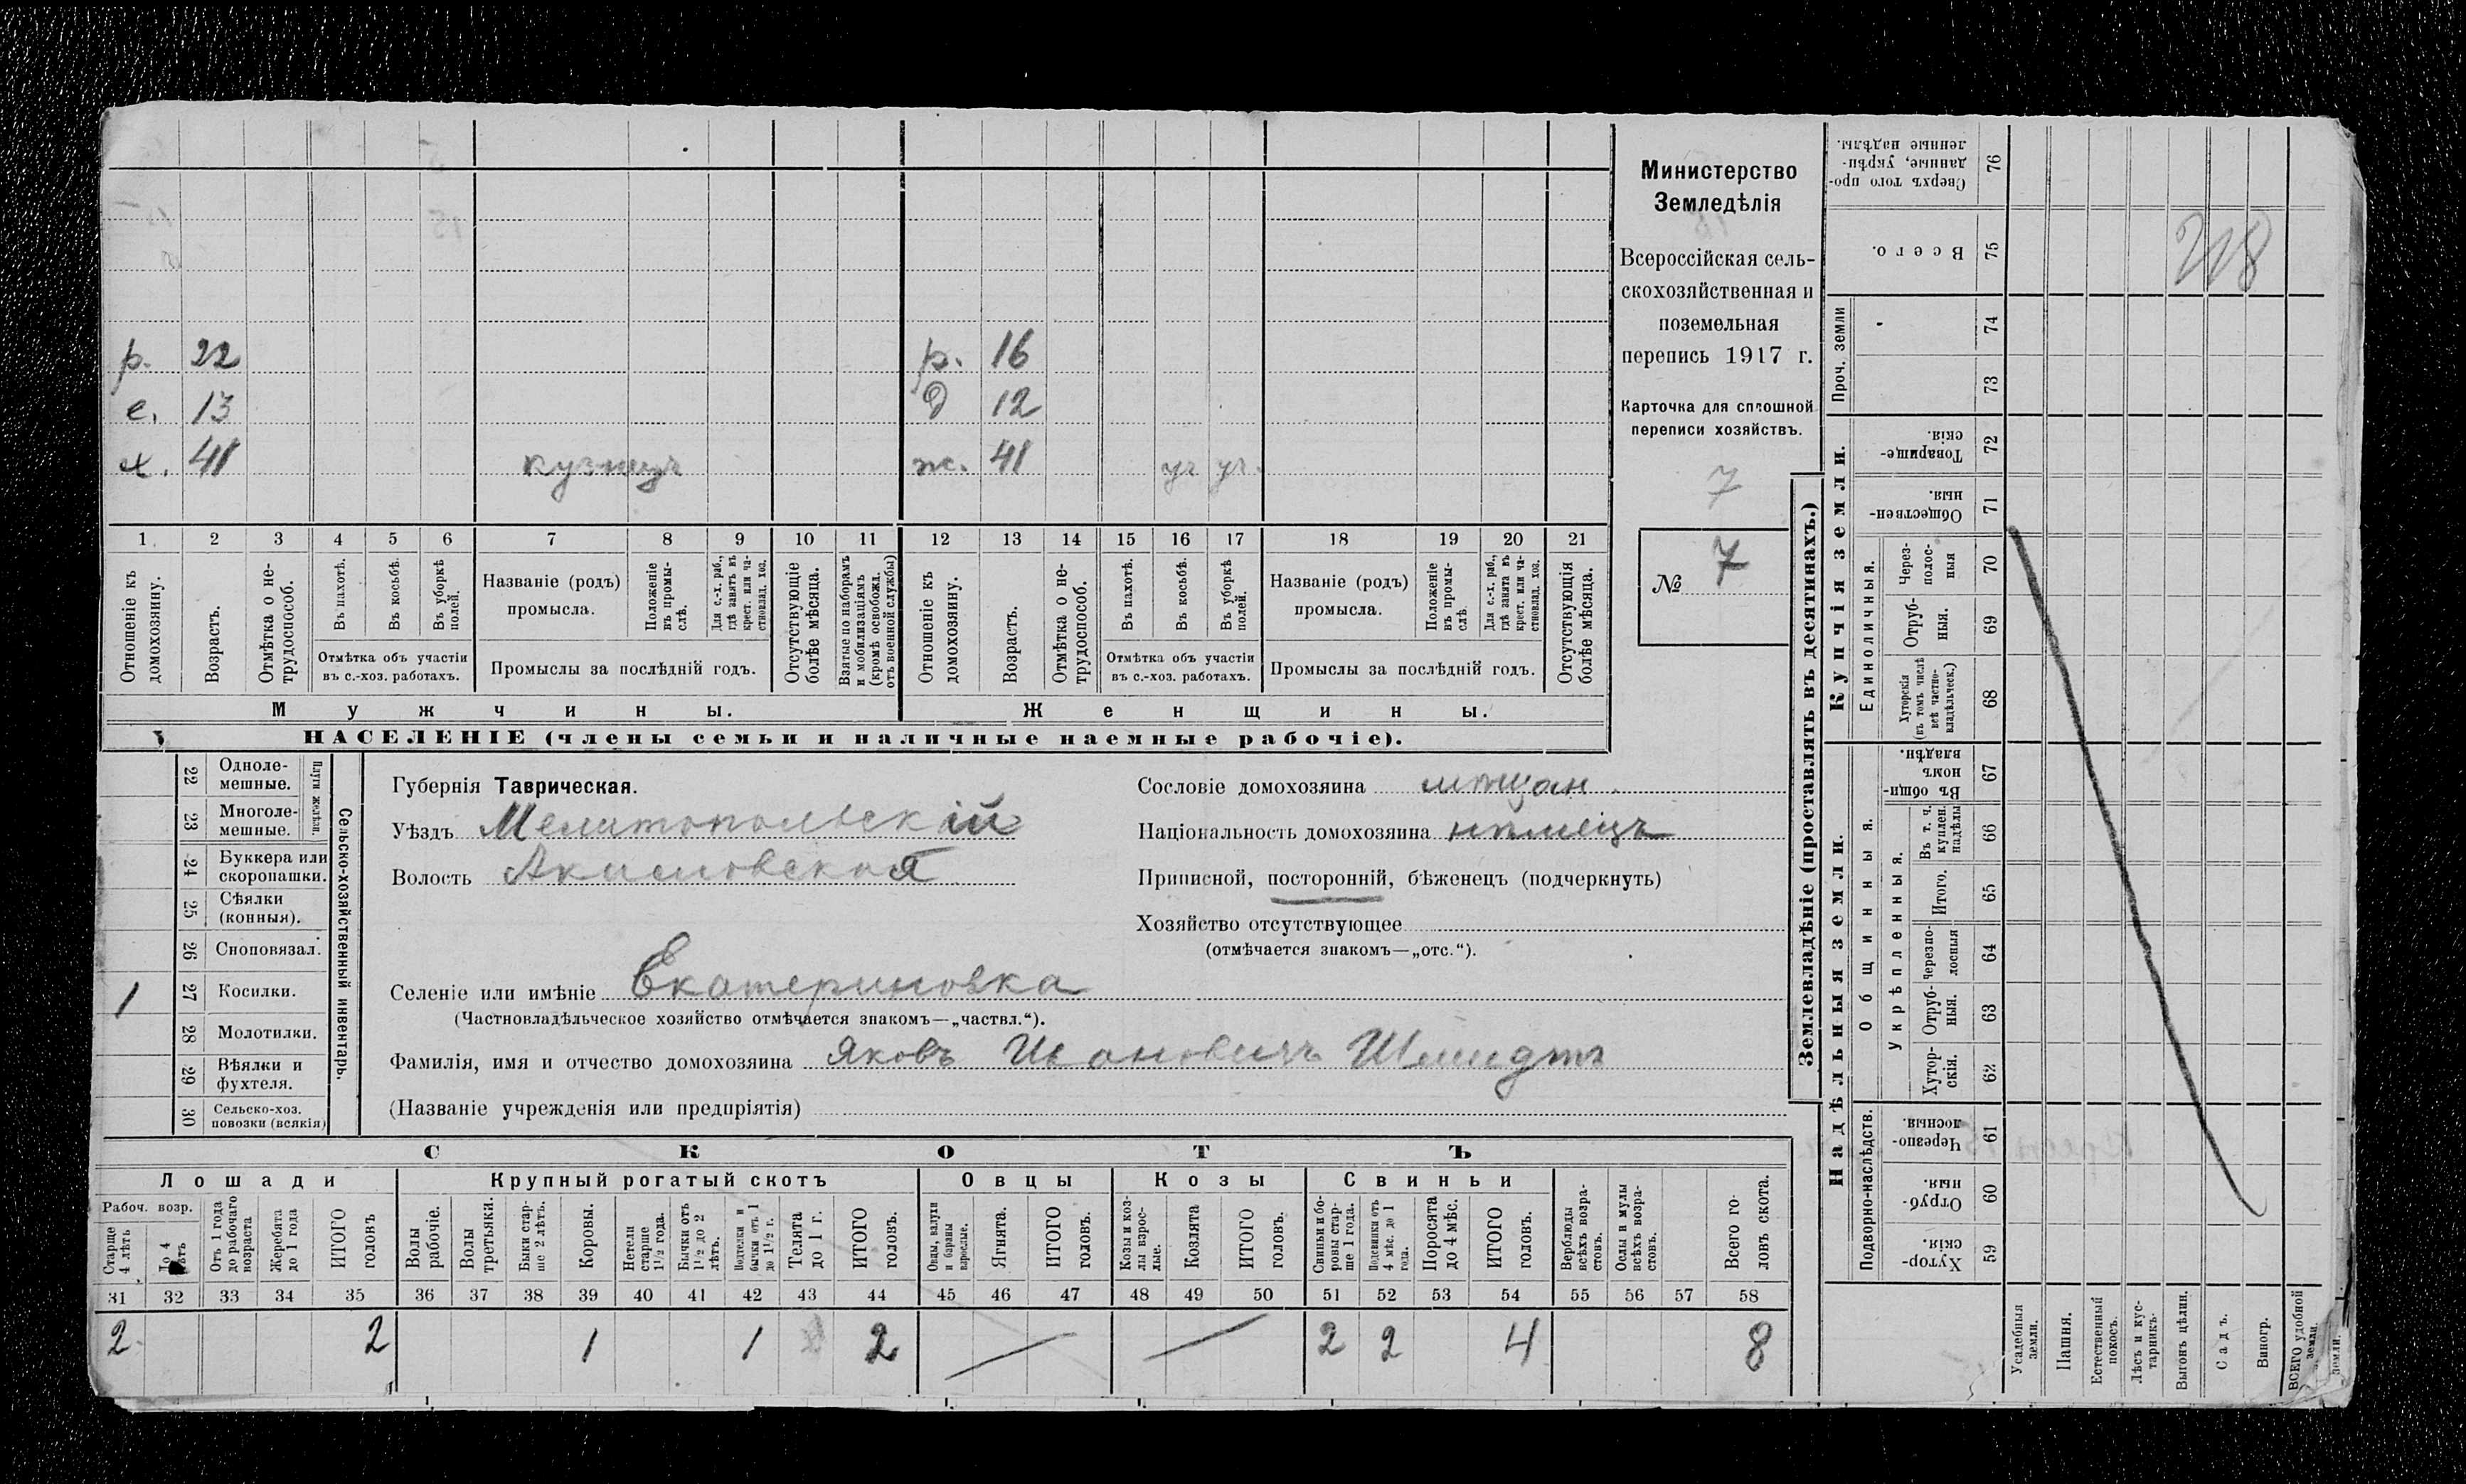 р. 22 р. 16
с. 13 д 12
х. 41 кузнецъ ж. 41 уч уч.
1 2 3 4 5 6 7 8 9 10 11 12 13 14 15 16 17 18 19 20 21
Отношеніе къ домохозяину.
Возрастъ.
Отмѣтка о не-
трудоспособ.
Въ пахотѣ.
Въ косьбѣ.
Въ уборкѣ полей.
Отмѣтка объ участіи
въ с.-хоз. работахъ.
Названіе (родъ)
промысла.
Положеніе въ промы-
слѣ.
Для с.-х. раб.,
гдѣ занятъ въ
крест. или ча-
стновлад. хоз.
Промыслы за послѣдній годъ.
Отсутствующіе
болѣе мѣсяца.
Взятые по наборамъ
и мобилизаціямъ
(кромѣ освобожд.
отъ военной службы)
Отношеніе къ домохозяину.
Возрастъ.
Отмѣтка о не-
трудоспособ.
Въ пахотѣ.
Въ косьбѣ.
Въ уборкѣ полей.
Отмѣтка объ участіи
въ с.-хоз. работахъ.
Названіе (родъ)
промысла.
Положеніе въ промы-
слѣ.
Для с.-х. раб.,
гдѣ занята въ
крест. или ча-
стновлад. хоз.
Промыслы за послѣдній годъ.
Отсутствующія
болѣе мѣсяца.
Мужчины. Женщины.
НАСЕЛЕНІЕ (члены семьи и наличные наемные рабочіе).
Министерство
Земледѣлія
Всероссійская сель-
скохозяйственная и
поземельная
перепись 1917 г.
Карточка для сплошной
переписи хозяйствъ.
7
№ 7
22 Одноле-
мешные.
23 Многоле-
мешные.
Плуги желѣзн.
24 Буккера или
скоропашки.
25 Сѣялки
(конныя).
26 Сноповязал.
1 27 Косилки.
28 Молотилки.
29 Вѣялки и
фухтеля.
30 Сельско-хоз.
повозки (всякія)
Сельско-хозяйственный инвентарь.
Губернія Таврическая.
Уѣздъ Мелитопольскій
Волость Акимовская
Селеніе или имѣніе Екатериновка
(Частновладѣльческое хозяйство отмѣчается знакомъ—„частвл.“).
Фамилія, имя и отчество домохозяина Яковъ Ивановичъ Шмидтъ
(Названіе учрежденія или предпріятія)
Сословіе домохозяина мѣщан.
Національность домохозяина нѣмецъ
Приписной, посторонній, бѣженецъ (подчеркнуть)
Хозяйство отсутствующее
(отмѣчается знакомъ—„отс.“).
СКОТЪ
Лошади Крупный рогатый скотъ Овцы Козы Свиньи
Рабоч. возр.
Старше
4 лѣтъ
До 4
лѣтъ
Отъ 1 года
до рабочаго
возраста
Жеребята
до 1 года
ИТОГО
головъ
Волы
рабочіе.
Волы
третьяки.
Быки стар-
ше 2 лѣтъ.
Коровы.
Нетели
старше
1½ года.
Бычки отъ
1½ до 2
лѣтъ.
Подтелки и
бычки отъ 1
до 1½ г.
Телята
до 1 г.
ИТОГО
головъ.
Овцы, валухи
и бараны
взрослые.
Ягнята.
ИТОГО
головъ.
Козы и коз-
лы взрос-
лые.
Козлята
ИТОГО
головъ.
Свиньи и бо-
ровы стар-
ше 1 года.
Подсвинки отъ
4 мѣс. до 1
года.
Поросята
до 4 мѣс.
ИТОГО
головъ.
Верблюды
всѣхъ возра-
стовъ.
Ослы и мулы
всѣхъ возра-
стовъ.
Всего го-
ловъ скота.
31 32 33 34 35 36 37 38 39 40 41 42 43 44 45 46 47 48 49 50 51 52 53 54 55 56 57 58
2 2 1 1 2 2 2 4 8
Землевладѣніе (проставлять въ десятинахъ.)
Надѣльныя земли. Купчія земли.
Проч. земли
Подворно-наслѣдств.
Общинныя.
Укрѣпленныя.
Единоличныя.
Сверхъ того про-
данные, укрѣп-
ленные надѣлы. 76
Всего. 75
74
73
Товарище-
скія. 72
Обществен-
ныя. 71
Через-
полос-
ныя 70
Отруб-
ныя. 69
Хуторскія
(въ томъ числѣ
всѣ частно-
владѣльческ.) 68
Въ общин-
номъ
владѣн. 67
Въ т. ч.
куплен.
надѣлы 66
Итого. 65
Черезпо-
лосныя 64
Отруб-
ныя. 63
Хутор-
скія. 62
Черезпо-
лосныя. 61
Отруб-
ныя. 60
Хутор-
скія. 59
Усадебныя
земли.
Пашня.
Естественный
покосъ.
Лѣсъ и кус-
тарникъ.
Выгонъ цѣлин.
Садъ.
Виногр.
ВСЕГО удобной
земли.
земли.